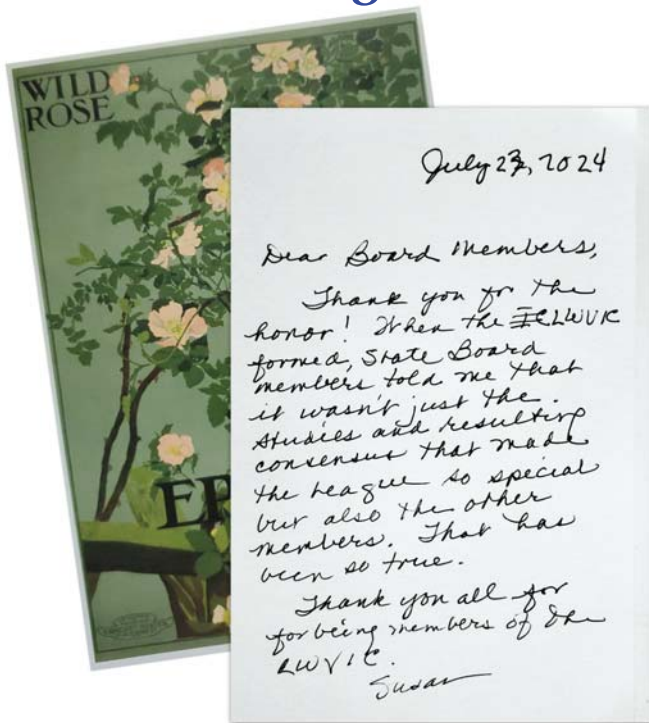 WILD
ROSE
EP
July 23, 2024
Dear Board Members,
Thank you for the
honor! When the LWVIC
formed, State Board
members told me that
it wasn't just the
studies and resulting
consensus that made
the League so special
but also the other
members. That has
been so true.
Thank you all for
for being members of the
LWVIC.
Susan